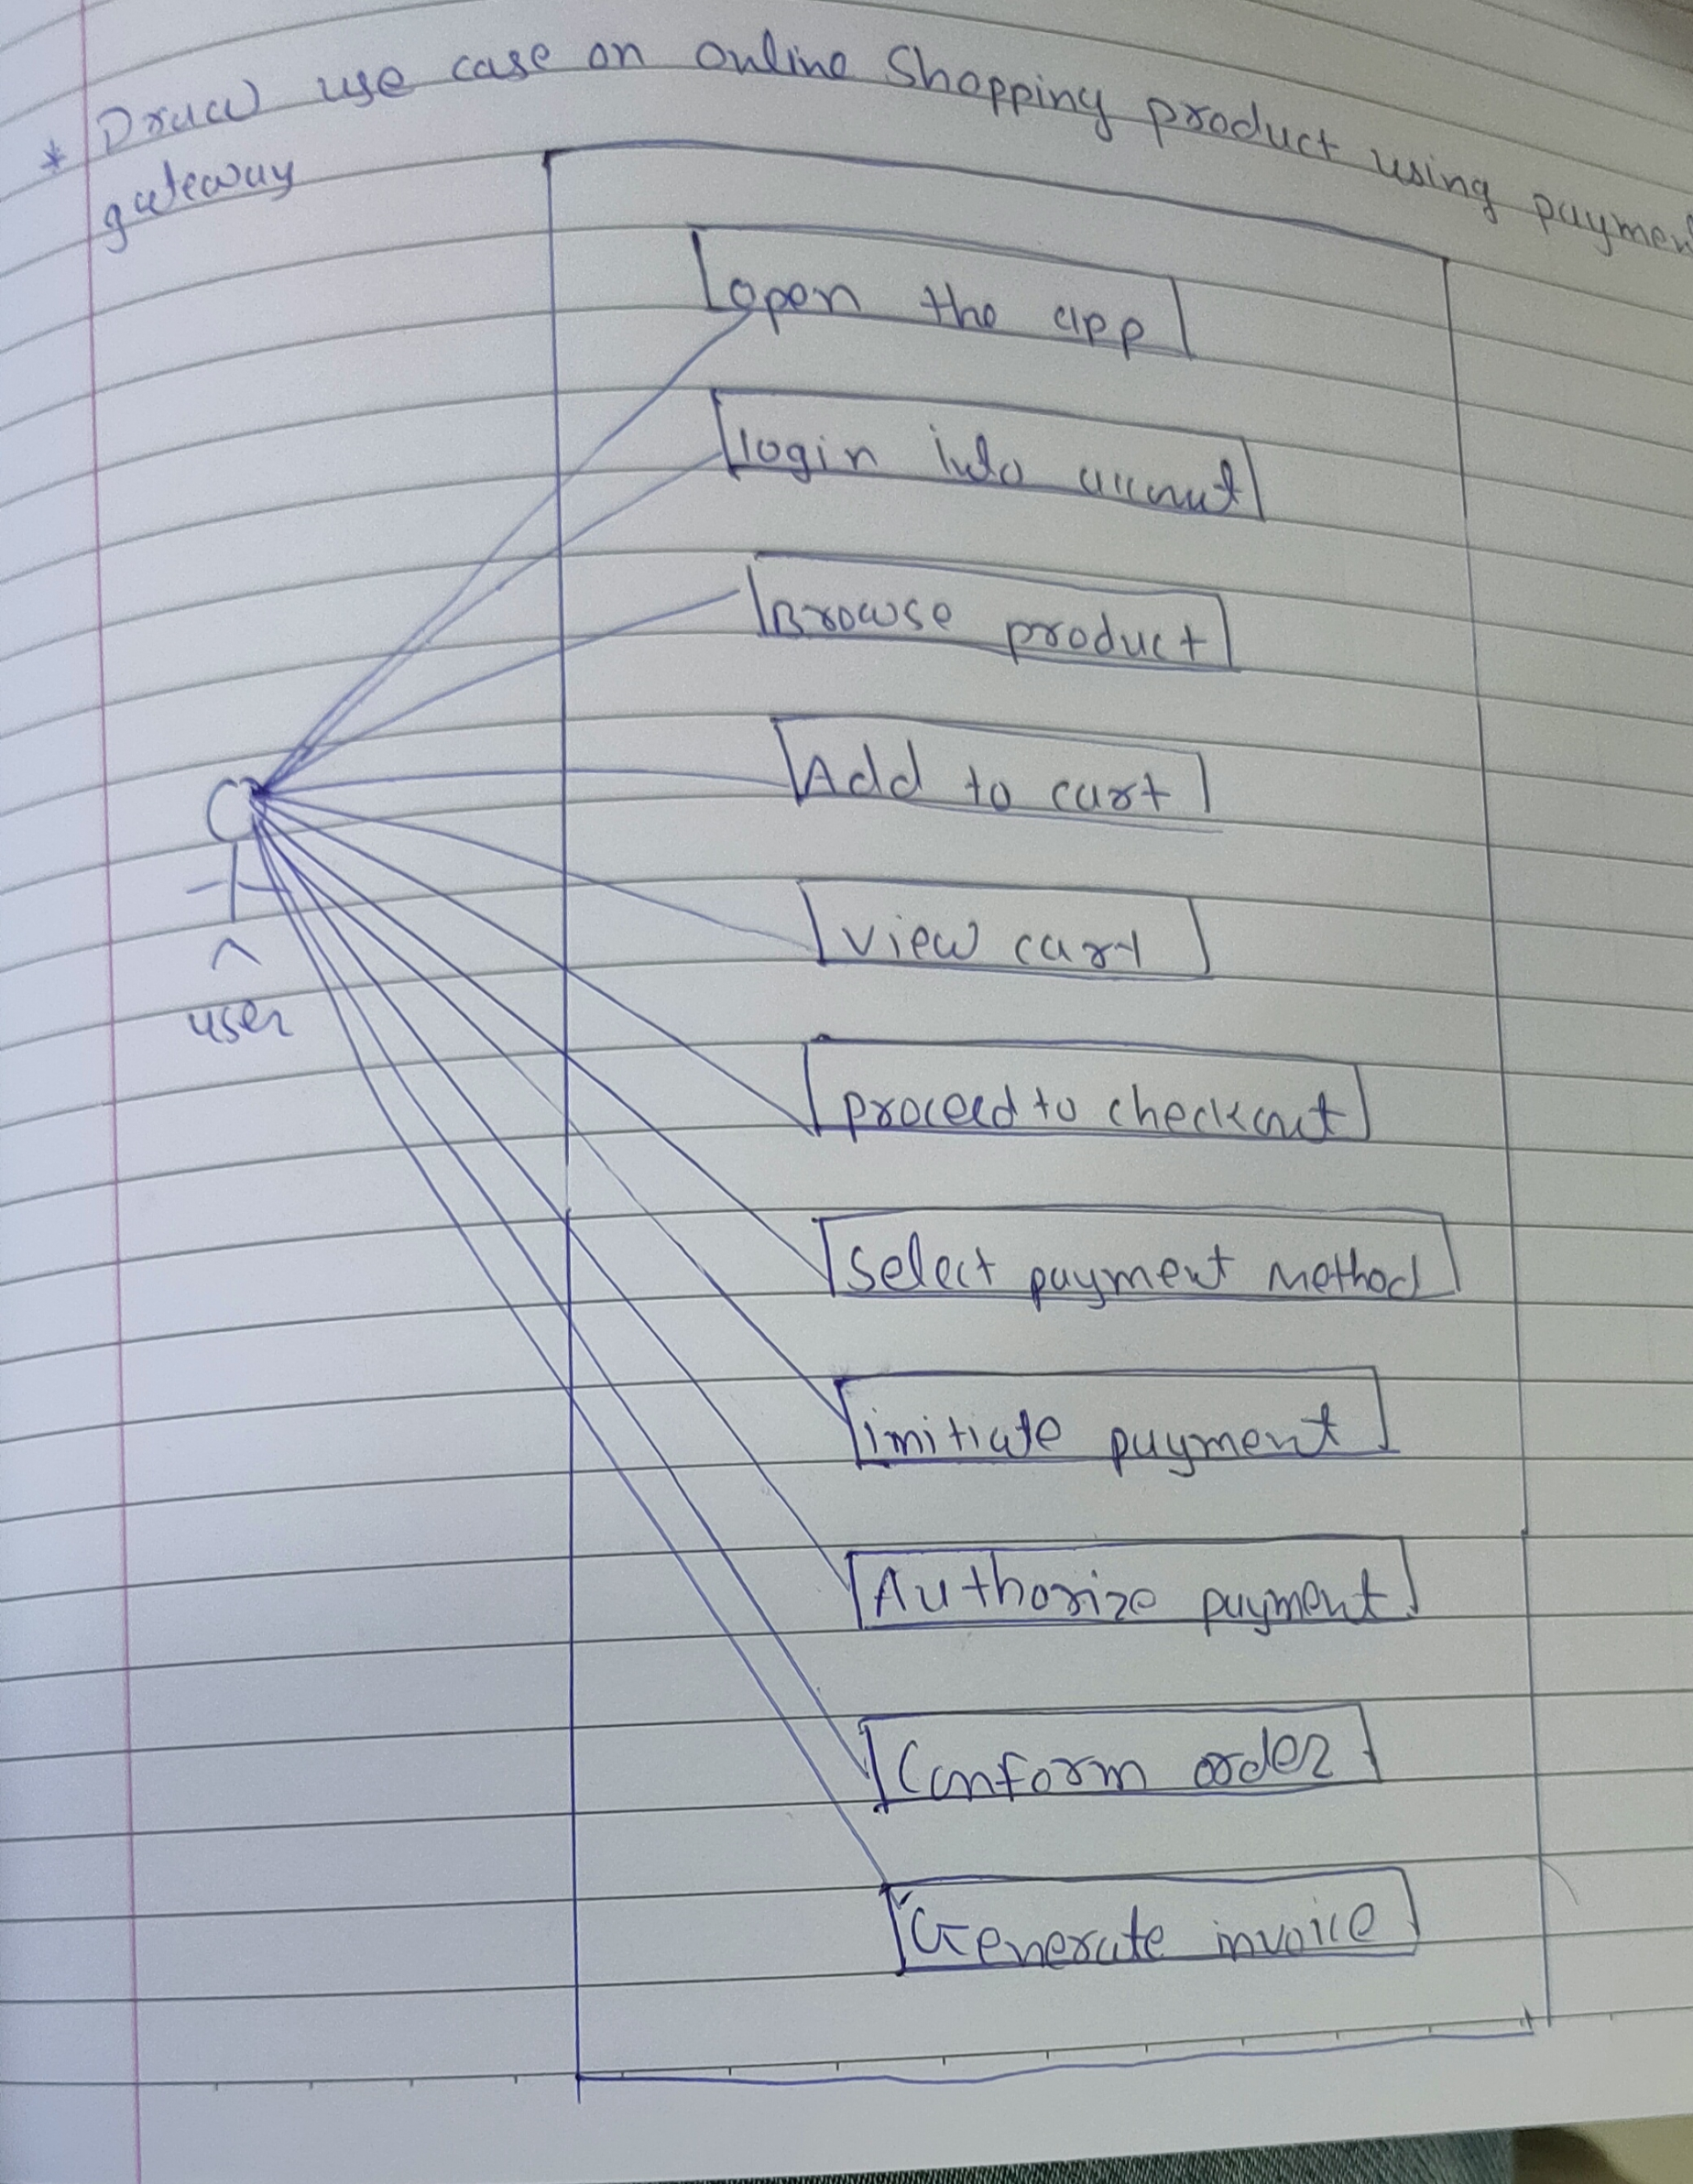 * Draw use case on online Shopping product using payment
gateway
open the app
login into account
Browse product
Add to cart
view cart
user
proceed to checkout
select payment method
imitiate payment
Authorize payment
Conform order
Generate invoice